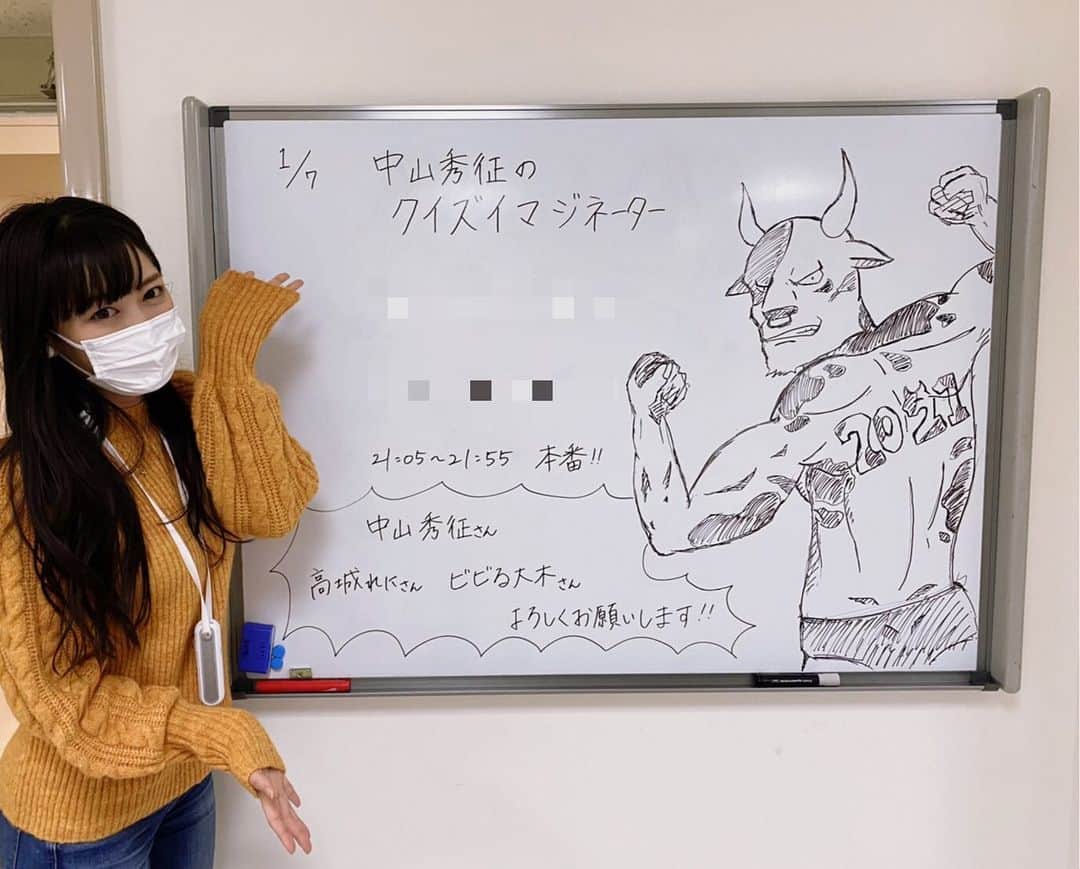 1/7 中山秀征の
クイズイマジネーター
21:05〜21:55 本番!!
中山秀征さん
高城れにさん ビビる大木さん
よろしくお願いします!!
2021